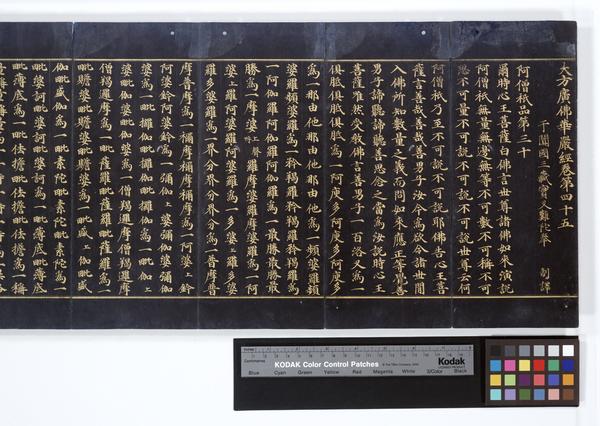 大方廣佛華嚴經卷第四十五
于闐國三藏實叉難陀奉 制譯
阿僧祇品第三十
爾時心王菩薩白佛言世尊諸佛如來演說
阿僧祇無量無邊無等不可數不可稱不可
思不可量不可說不可說不可說世尊云何
阿僧祇乃至不可說不可說耶佛告心王菩
薩言善哉善哉善男子汝今為欲令諸世間
入佛所知數量之義而問如來應正等覺善
男子諦聽諦聽善思念之當為汝說時心王
菩薩唯然受教佛言善男子一百洛叉為一
俱胝俱胝俱胝為一阿庾多阿庾多阿庾多
為一那由他那由他那由他為一頻婆羅頻
婆羅頻婆羅為一矜羯羅矜羯羅矜羯羅為
一阿伽羅阿伽羅阿伽羅為一最勝最勝最
勝為一摩婆上聲呼羅摩婆羅摩婆羅為一阿
婆上羅阿婆羅阿婆羅為一多婆上羅多婆
羅多婆羅為一界分界分界分為一普摩普
摩普摩為一禰摩禰摩禰摩為一阿婆上鈐
阿婆鈐阿婆鈐為一彌伽上婆彌伽婆彌伽
婆為一毗攞伽毗攞伽毗攞伽為一毗伽上
婆毗伽婆毗伽婆為一僧羯邏摩僧羯邏摩
僧羯邏摩為一毗薩羅毗薩羅毗薩羅為一
毗贍婆毗贍婆毗贍婆為一毗盛上伽毗盛
伽毗盛伽為一毗素陀毗素陀毗素陀為一
毗婆訶毗婆訶毗婆訶為一毗薄底毗薄底
毗薄底為一毗佉擔毗佉擔毗佉擔為一稱
KODAK Color Control Patches
Kodak
Blue Cyan Green Yellow Red Magenta White 3/Color Black